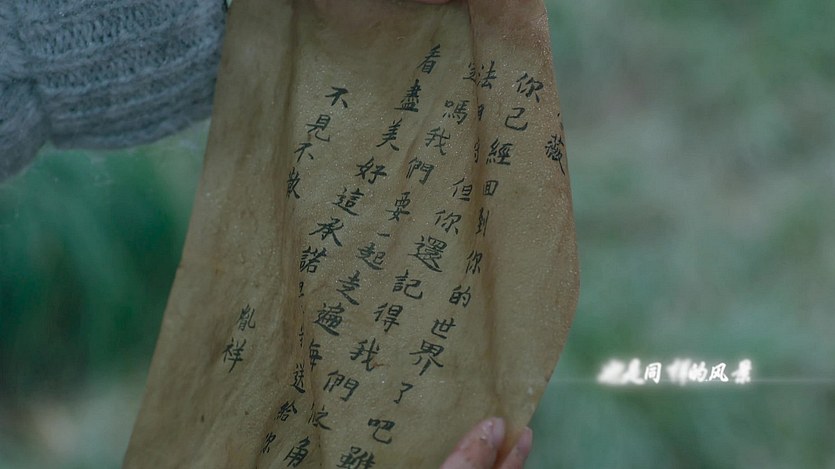 薇
你已經回到你的世界了吧雖
法
但你還記得我們
嗎我們要一起走遍海
角
看盡美好這承諾
送給你
不見不散
胤祥
也是同样的风景